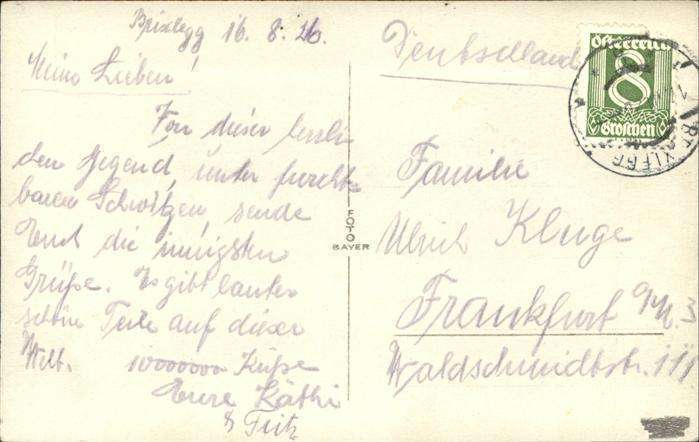 Brixlegg 16. 8. 26.
Meine Lieben!
Von dieser herrli
chen Gegend, unter furcht-
baren Schwitzen sende
Euch die innigsten
Grüße. Es gibt lauter
schöne Teile auf dieser
Welt. 10000000 Küße
Eure Käthi
& Fritz
FOTO
BAYER
Deutschland
Österreich
8
Groschen
BRIXLEGG
Familie
Ulrich Kluge
Frankfurt a/M.
Waldschmidtstr.